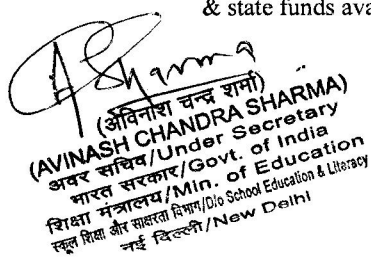 & state funds ava
A Sharma
(अविनाश चन्द्र शर्मा)
(AVINASH CHANDRA SHARMA)
अवर सचिव/Under Secretary
भारत सरकार/Govt. of India
शिक्षा मंत्रालय/Min. of Education
स्कूल शिक्षा और साक्षरता विभाग/D/o School Education & Literacy
नई दिल्ली/New Delhi